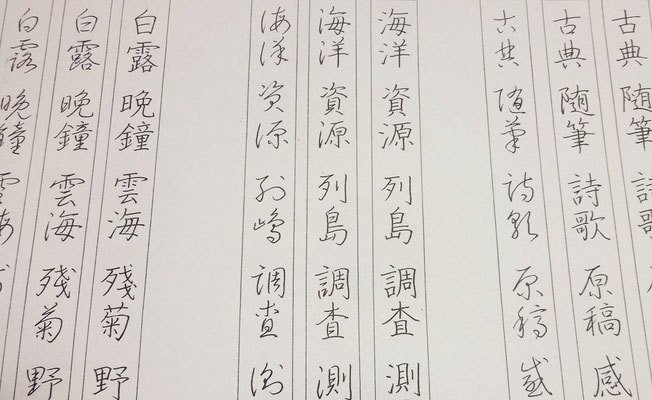 古典 随筆 詩歌
古典 随筆 詩歌 原稿 感
古典 随筆 詩歌 原稿 感
海洋 資源 列島 調査 測
海洋 資源 列島 調査 測
海洋 資源 列嶋 調査 測
白露 晩鐘 雲海 残菊 野
白露 晩鐘 雲海 残菊 野
白露 晩鐘 雲海